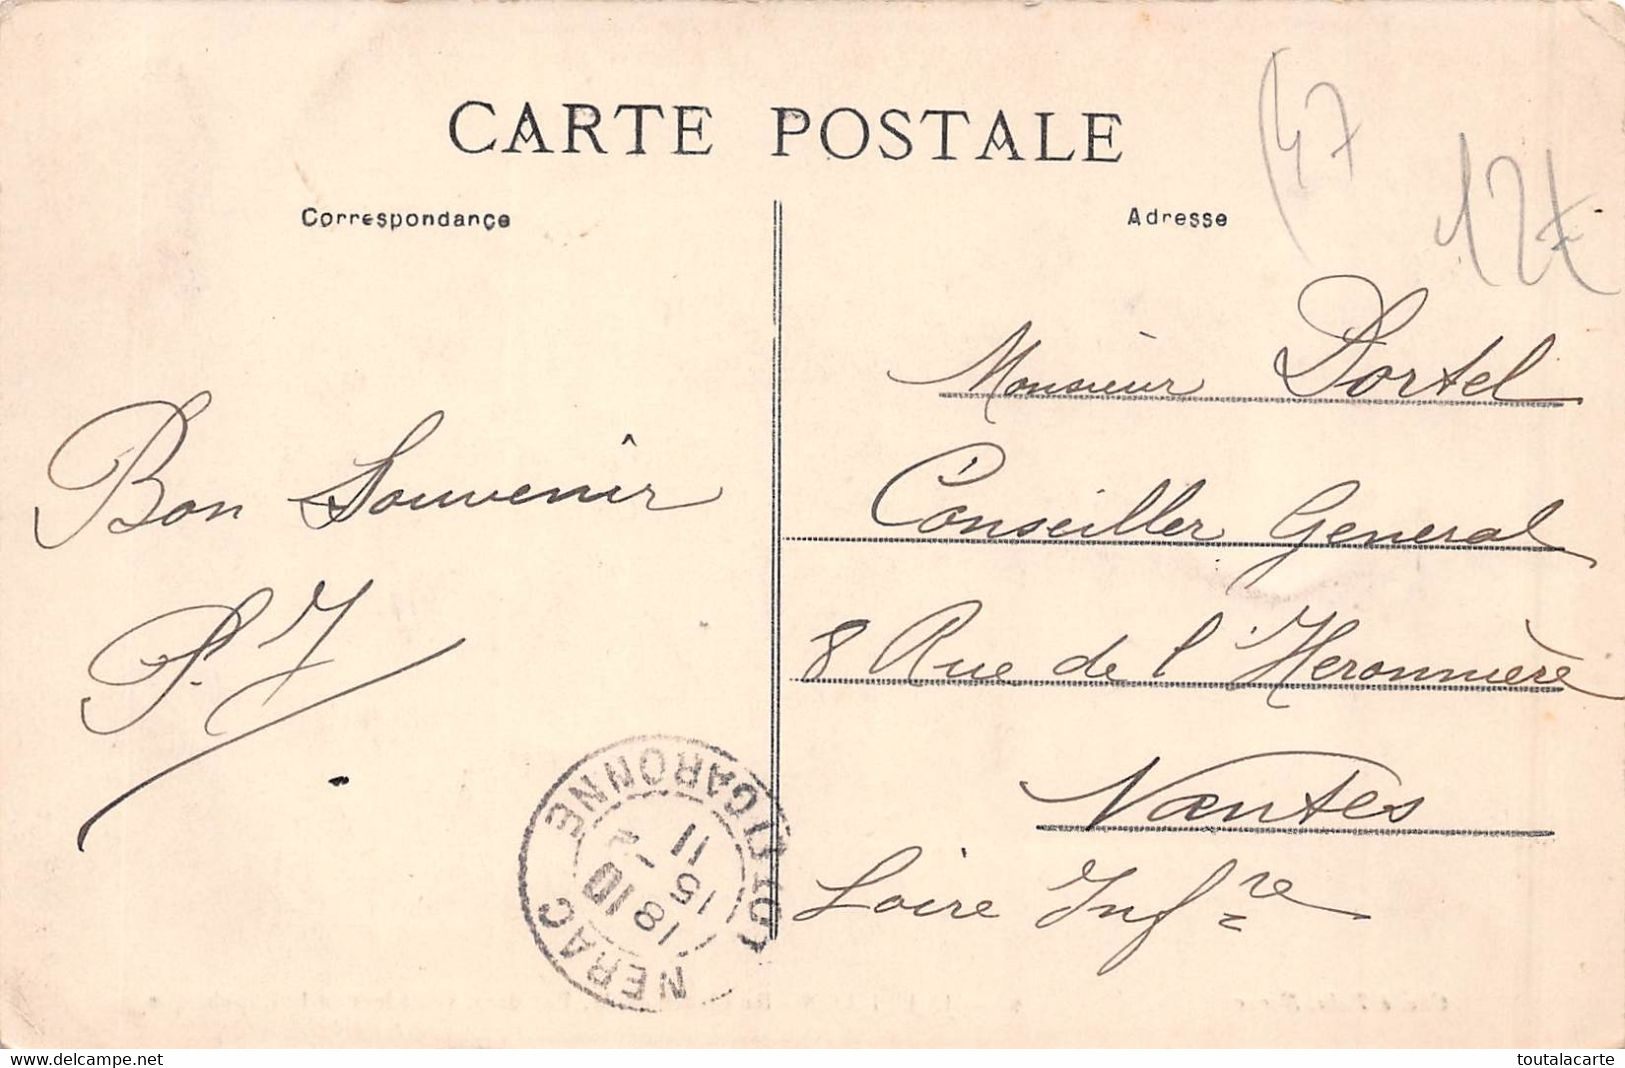 CARTE POSTALE
Correspondance
Adresse
(47
12€
Bon Souvenir
P. J
Monsieur Dortel
Conseiller General
8 Rue de l'Heronnière
Nantes
Loire Infre
NERAC
LOT ET GARONNE
18 10
15 - 2
11
www.delcampe.net
toutalacarte